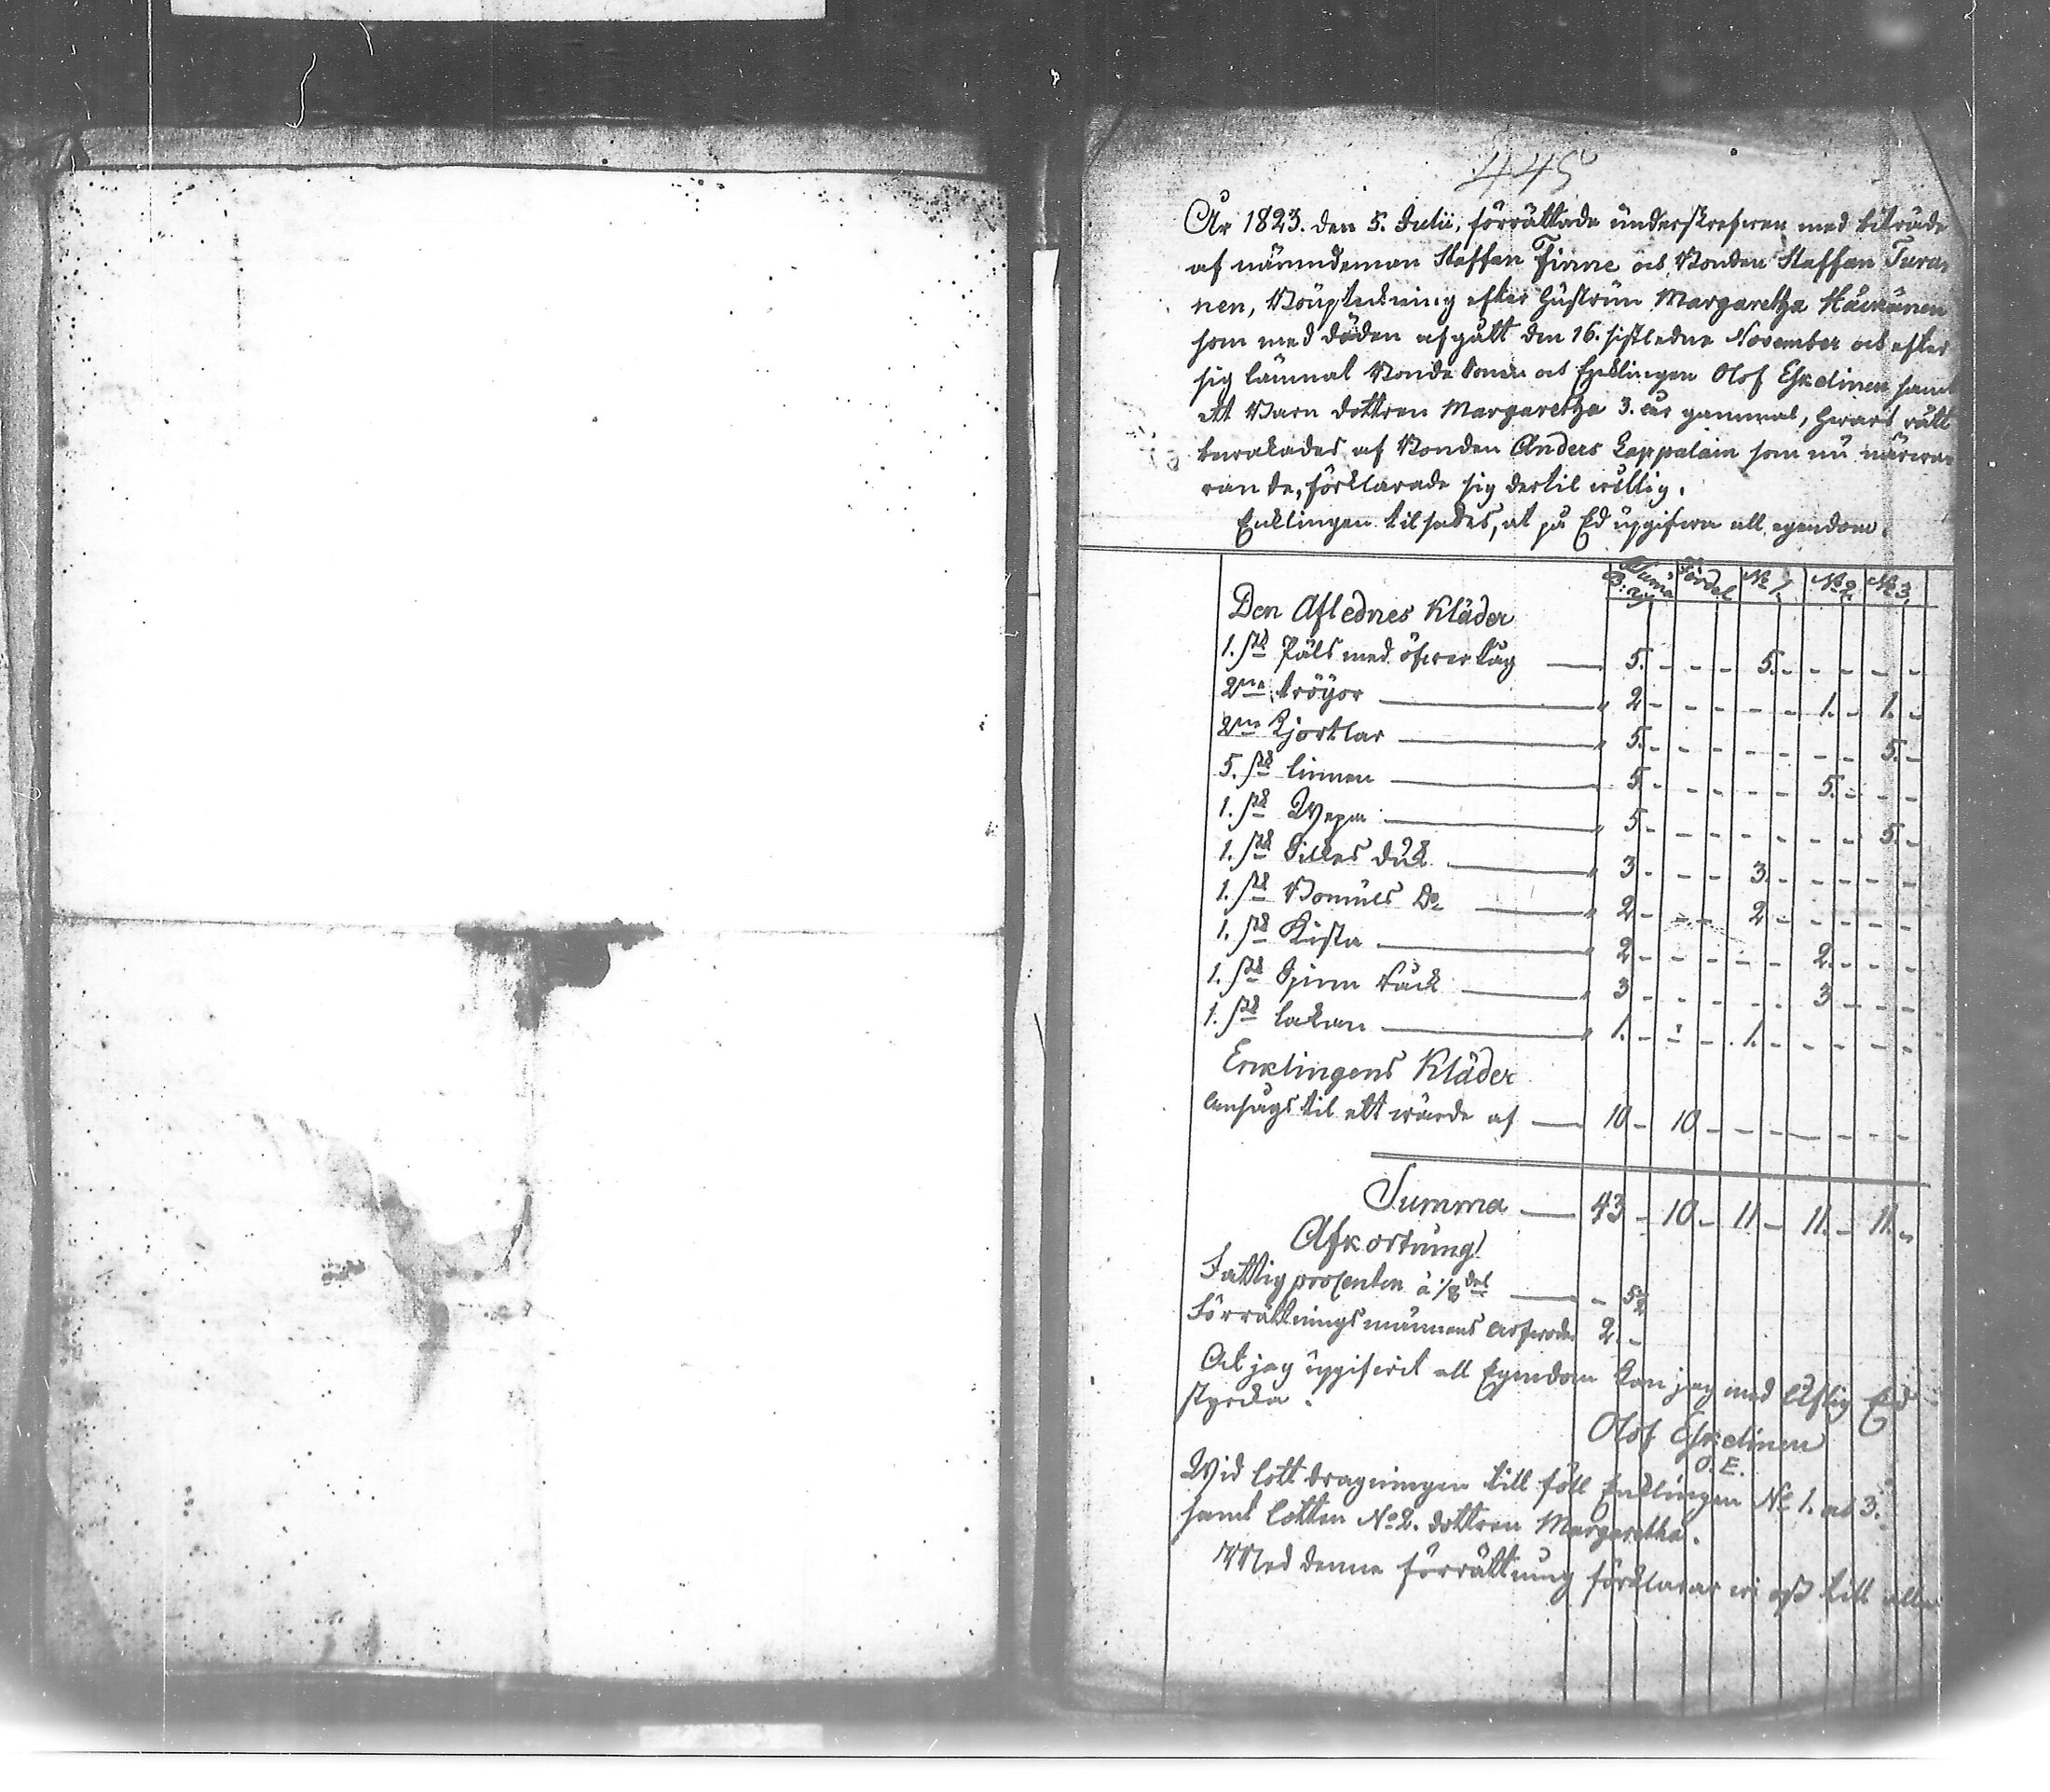 445
År 1823. den 5. Julii, förrättade underskrefwen med biträde
af nämndeman Staffan Finne och Bonden Staffan Tura-
nen, Bouptekning efter hustrun Margaretha
som med döden afgått den 16. sistledne November och efter
sig lämnat Bonde Sonen och Encklingen Olof Eskelinen samt
ett Barn dottren Margaretha 3. år gammal, hwars rätt
bewakades af Bonden Anders Lappalain som nu närwa-
rande, förklarade sig dertil willig.
Encklingen tilsades, at på Ed upgifwa all egendom.
Summa Fördel No 1. No 2. No 3.
B: Rg
Den Aflednes Kläder
1. st Päls med öfwertåg — 5. - - - 5. - - - - -
2ne tröyor — " 2 - - - - - 1. - 1. -
2ne Kjortlar — " 5. - - - - - - - 5. -
5. st linnen — 5. - - - - - 5. - - -
1. st Wepa — " 5 - - - - - - - 5. -
1. st Silkes duk — " 3 - - - 3. - - - - -
1. st Bomuls Do — " 2 - - - 2 - - - - -
1. st Kista — " 2 - - - - - 2. - - -
1. st Spinn råck — " 3 - - - - - 3 - - -
1. st lakan — " 1. - - - 1. - - - - -
Enklingens Kläder
ansågs til ett wärde af — 10 - 10 - - - - - - -
Summa — 43 - 10 - 11 - 11. - 11. -
Afkortning
Fattigprocenten à 1/8 del — - 5
Förrättningsmännens arfwode 2. -
At jag upgifwit all Egendom kan jag med liflig Ed
styrcka.
Olof Eskelinen
O. E.
Wid lottdragningen till föll Enklingen No 1. och 3.
samt lotten No 2. dottren Margaretha.
Med denne förrättning förklarar wi oss till alla